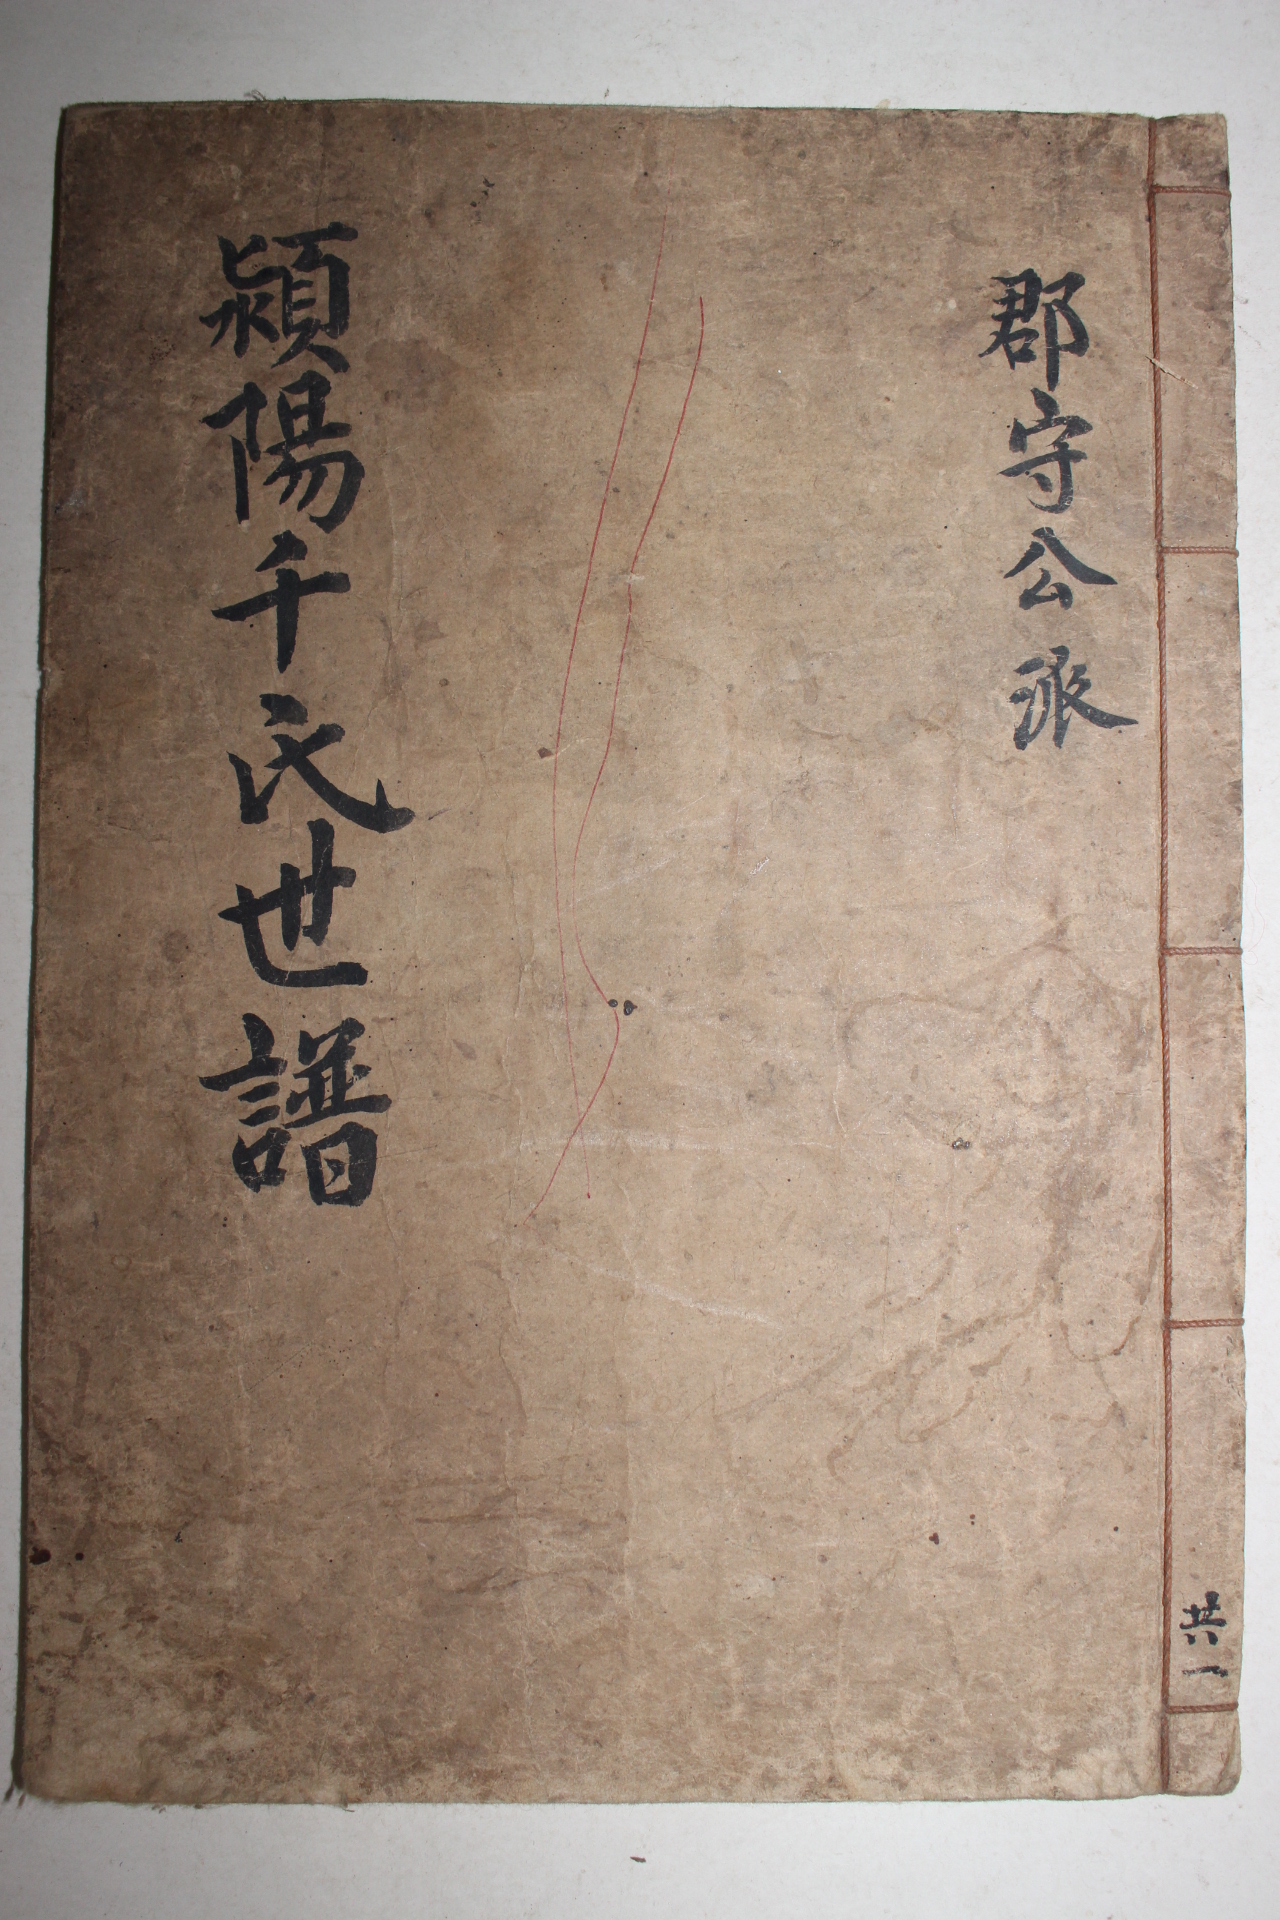 郡守公派
潁陽千氏世譜
共一